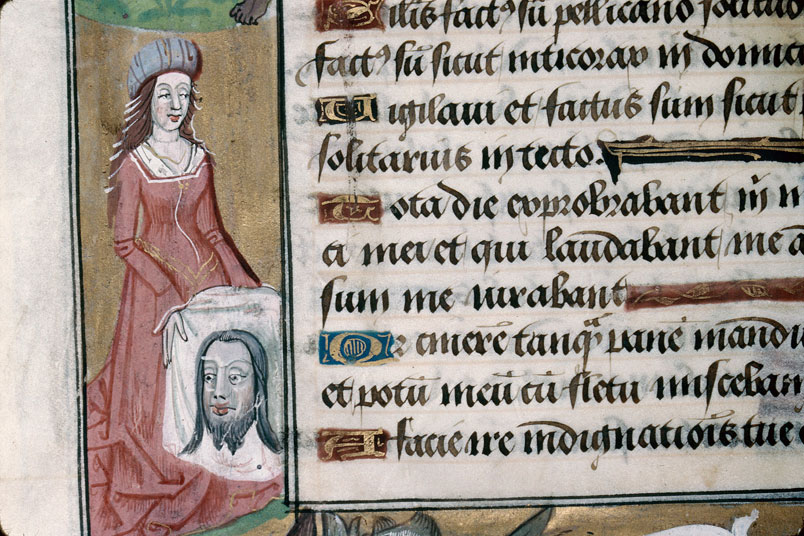 ilis factꝰ sū pellicano
factꝰ sū sicut nicticorax in
Vigilaui et factus sum sicut
solitarius in tecto.
Tota die exprobrabant m̄
ci mei et qui laudabant me
sum me iurabant
cinerē tanqᵃ panē
et potū meū cū fletu
A facie ire indignatiōis tue